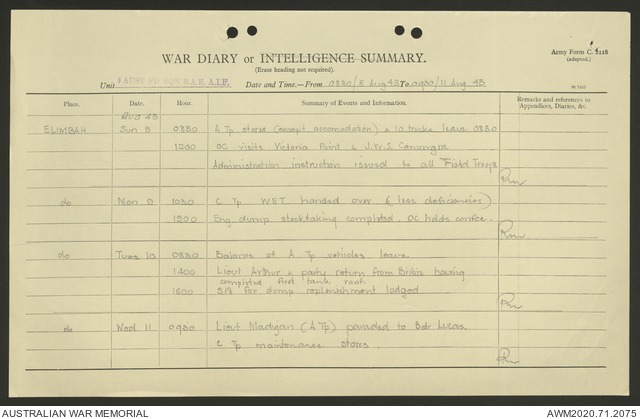 WAR DIARY or INTELLIGENCE SUMMARY.
Army Form C. 2118
(adapted.)
(Erase heading not required).
Unit AUST FD SQN R.A.E. A.I.F. Date and Time.—From 0830/8 Aug 43 To 0930/11 Aug 43
Place. Date. Hour. Summary of Events and Information. Remarks and references to
Appendices, Diaries, &c.
AUG 43
ELIMBAH Sun 8 0830 A Tp stores (except accomodation) & 10 trucks leave 0830
1200 OC visits Victoria Point & J.W.S. Canungra
Administration instruction issued to all Field Troops
do Mon 9 1030 C Tp WET handed over (less deficiencies)
1200 Eng. dump stocktaking completed. OC holds confce.
do Tues 10 0830 Balance of A Tp vehicles leave
1400 Lieut Arthur & party return from Bribie having
completed first tank roof.
1600 for dump replenishment lodged
do Wed 11 0930 Lieut Madigan (A Tp) paraded to Bde
C Tp maintenance stores.
AUSTRALIAN WAR MEMORIAL AWM2020.71.2075